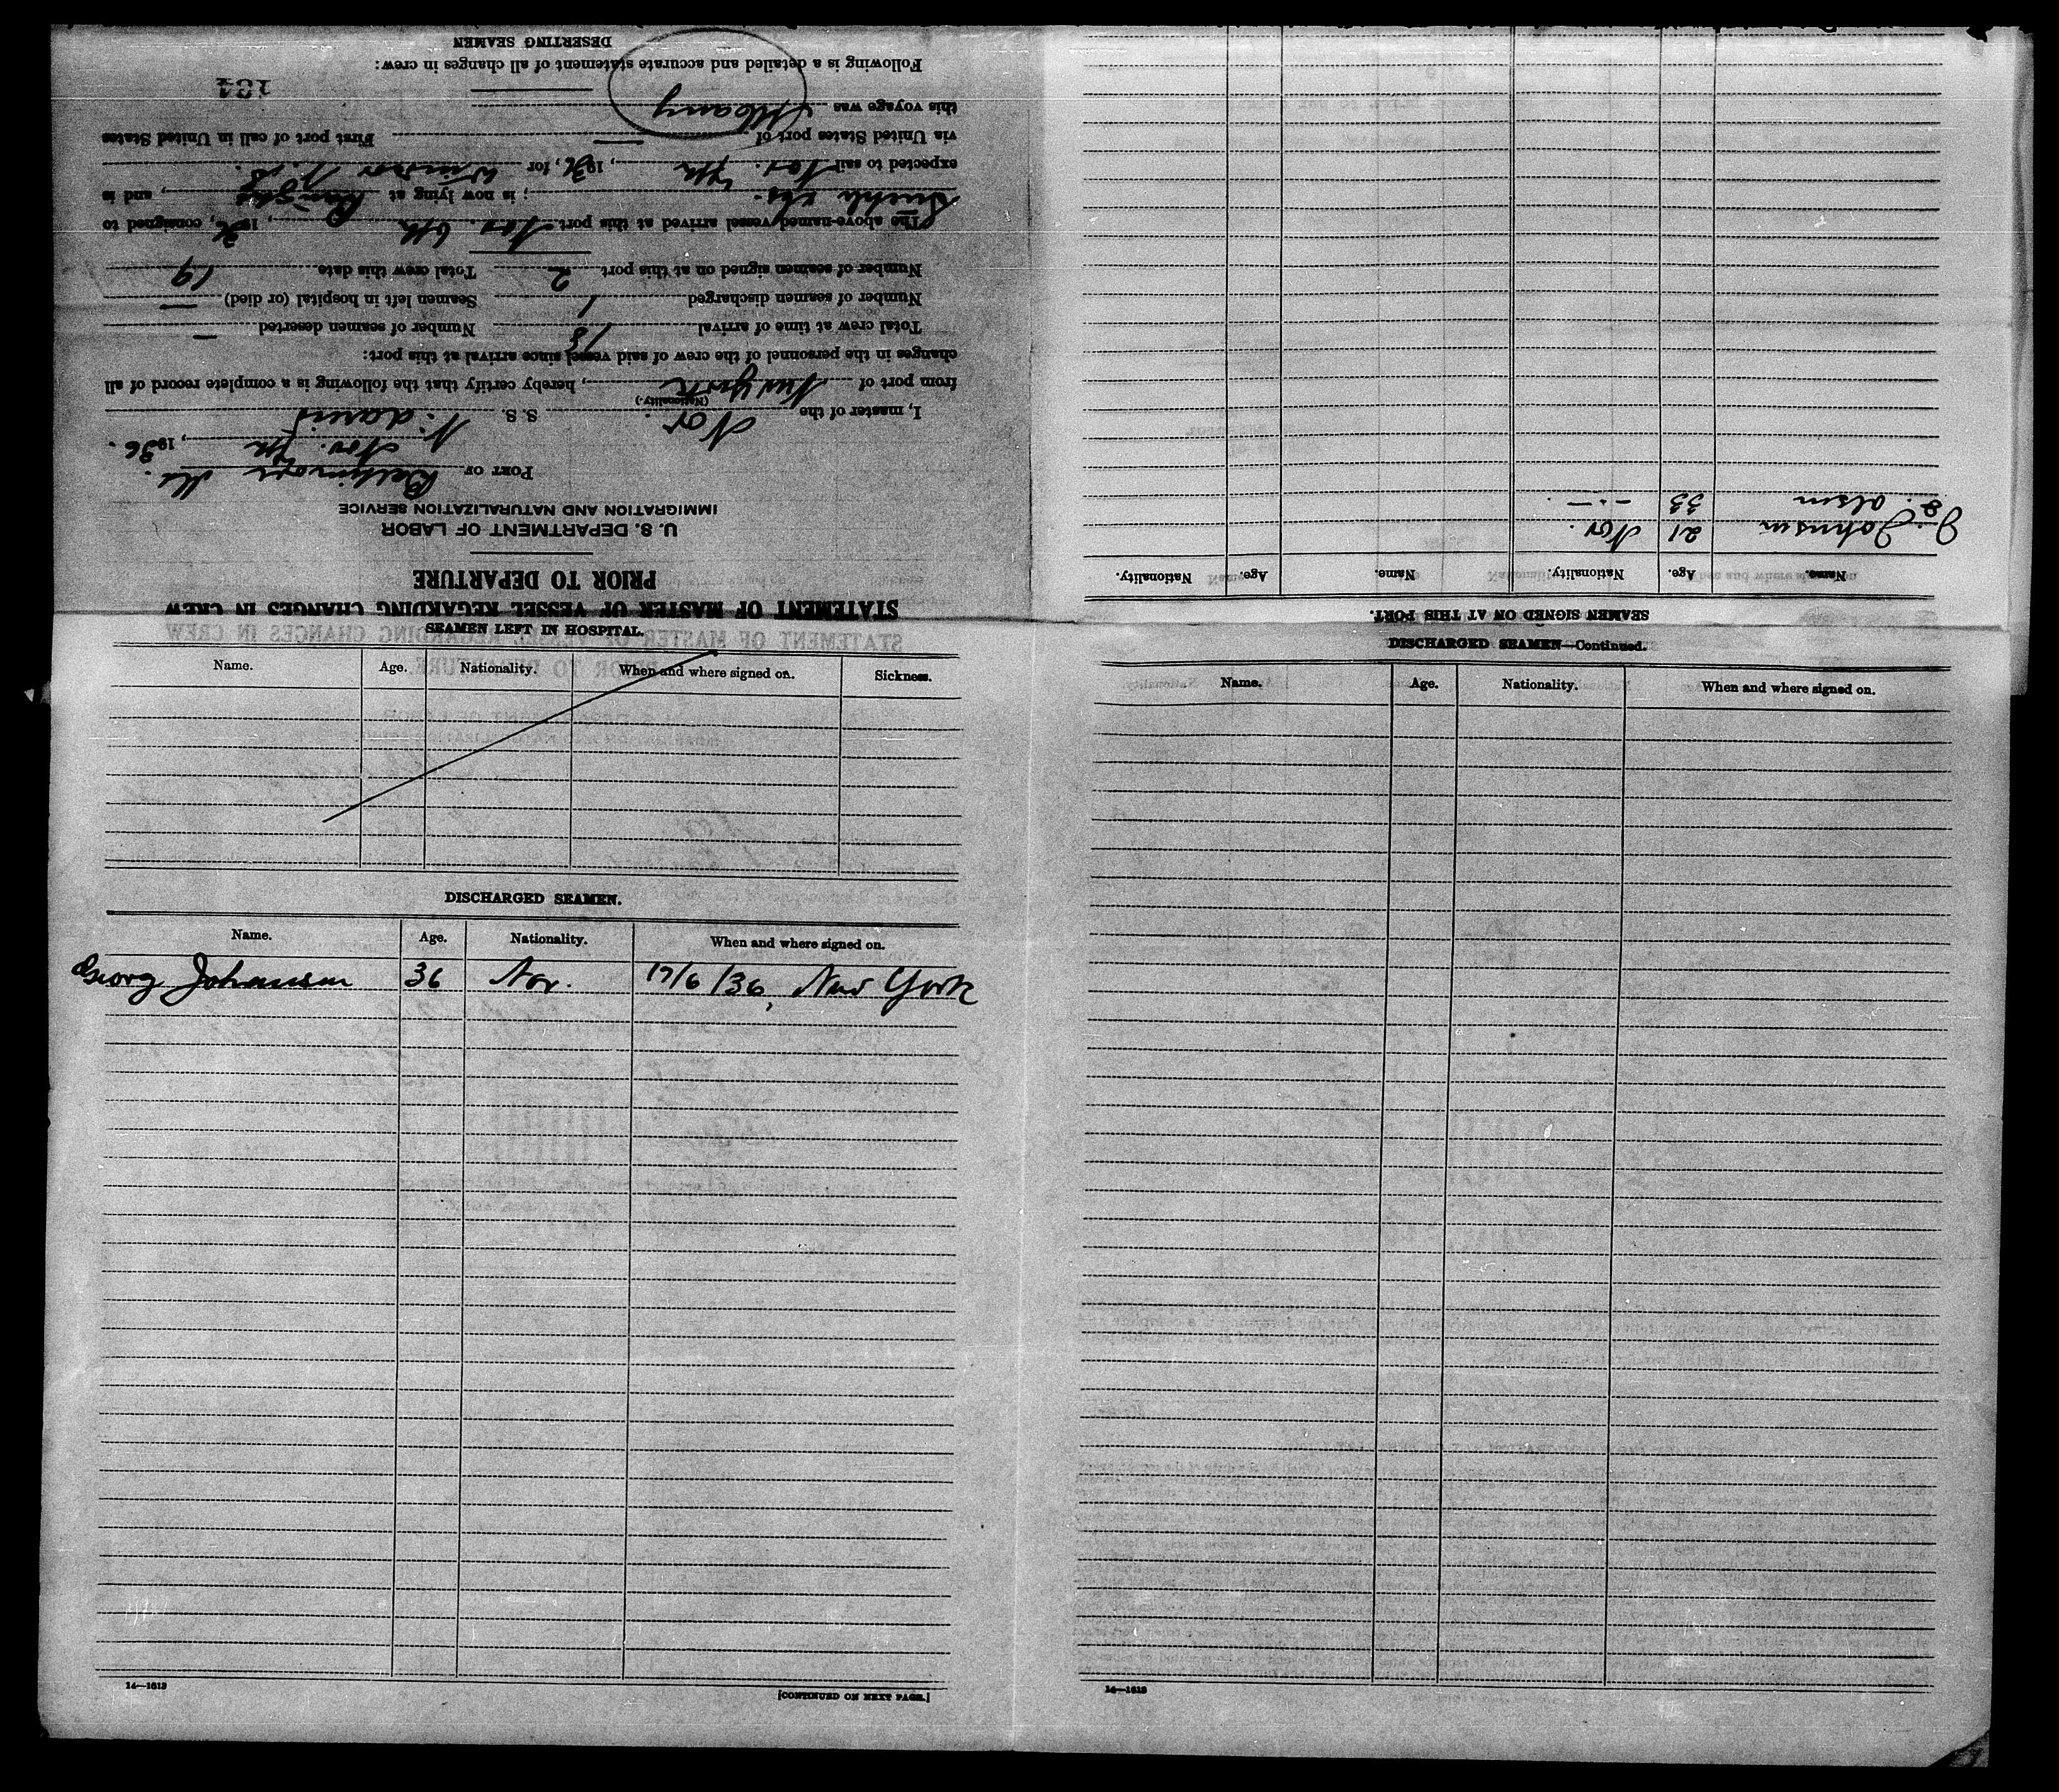 STATEMENT OF MASTER OF VESSEL REGARDING CHANGES IN CREW
PRIOR TO DEPARTURE
U. S. DEPARTMENT OF LABOR
IMMIGRATION AND NATURALIZATION SERVICE
PORT OF Baltimore Md.
Nov. 7th, 1936.
I, master of the Nor. S. S.
(Nationality.)
from port of New York, hereby certify that the following is a complete record of all
changes in the personnel of the crew of said vessel since arrival at this port:
Total crew at time of arrival 18 Number of seamen deserted —
Number of seamen discharged 1 Seamen left in hospital (or died) —
Number of seamen signed on at this port 2 Total crew this date 19
The above-named vessel arrived at this port Nov. 6th, 1936, consigned to
; is now lying at , and is
expected to sail Nov. 7th, 1936, for Windsor N.S.
via United States port of — First port of call in United States
this voyage was Albany
Following is a detailed and accurate statement of all changes in crew:
DESERTING SEAMEN
184
SEAMEN SIGNED ON AT THIS PORT.
Name. Age. Nationality. Name. Age. Nationality.
J. Johnsen 21 Nor.
Olsen 33 — " —
SEAMEN LEFT IN HOSPITAL.
Name. Age. Nationality. When and where signed on. Sickness.
DISCHARGED SEAMEN.
Name. Age. Nationality. When and where signed on.
Georg Johansen 36 Nor. 17/6/36, New York
14—1613
[CONTINUED ON NEXT PAGE.]
DISCHARGED SEAMEN—Continued.
Name. Age. Nationality. When and where signed on.
14—1613